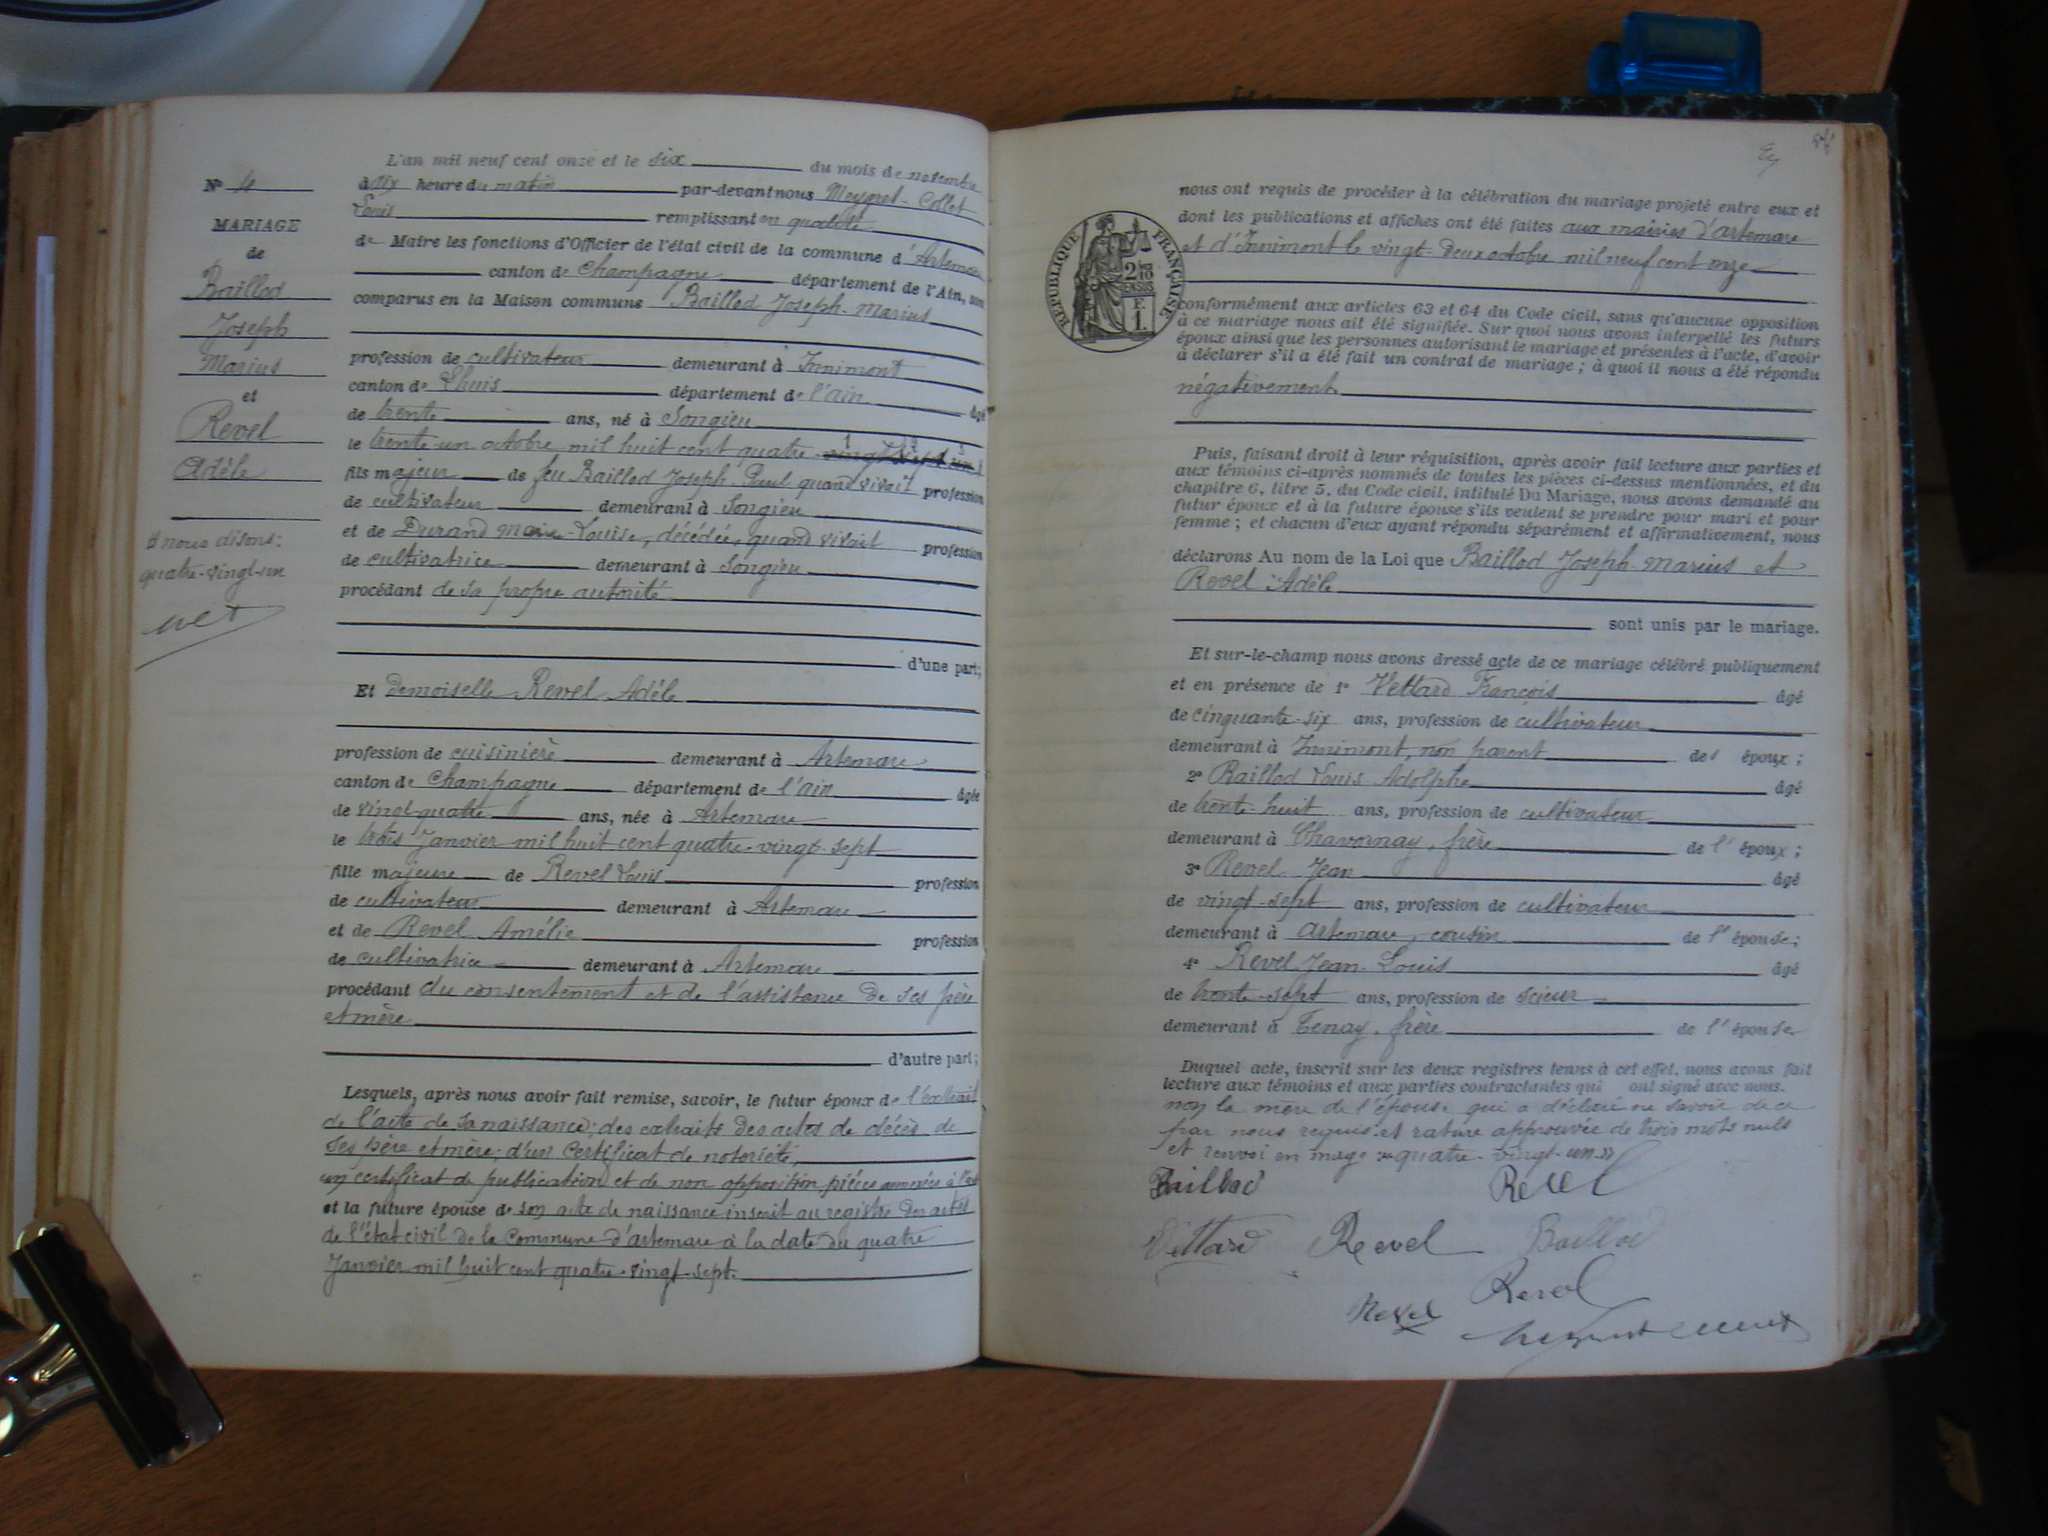 Nº 4
MARIAGE
de
Baillod
Joseph
Marius
et
Revel
Adèle
nous disons:
quatre-vingt-un
L'an mil neuf cent onze et le six du mois de novembre
à dix heure du matin par-devant nous Meygret-Collet
Louis remplissant en qualité
de Maire les fonctions d'Officier de l'état civil de la commune d'Artemare
canton de Champagne département de l'Ain, sont
comparus en la Maison commune Baillod Joseph-Marius
profession de cultivateur demeurant à Innimont
canton de Lhuis département de l'ain âgé
de trente ans, né à Songieu
le trente-un octobre mil huit cent quatre
fils majeur de feu Baillod Joseph-Paul quand vivait profession
de cultivateur demeurant à Songieu
et de Durand Marie-Louise, décédée, quand vivait profession
de cultivatrice demeurant à Songieu
procédant de sa propre autorité
d'une part;
Et demoiselle Revel Adèle
profession de cuisinière demeurant à Artemare
canton de Champagne département de l'ain âgée
de vingt-quatre ans, née à Artemare
le trois Janvier mil huit cent quatre-vingt-sept
fille majeure de Revel Louis profession
de cultivateur demeurant à Artemare
et de Revel Amélie profession
de cultivatrice demeurant à Artemare
procédant du consentement et de l'assistance de ses père
et mère
d'autre part;
Lesquels, après nous avoir fait remise, savoir, le futur époux de l'extrait
de l'acte de sa naissance; des extraits des actes de décès de
ses père et mère; d'un certificat de notoriété,
un certificat de publication et de non opposition pièces annexées à l'acte
et la future épouse de son acte de naissance inscrit au registre des actes
de l'état civil de la Commune d'artemare à la date du quatre
Janvier mil huit cent quatre-vingt-sept.
RÉPUBLIQUE FRANÇAISE
nous ont requis de procéder à la célébration du mariage projeté entre eux et
dont les publications et affiches ont été faites aux mairies d'artemare
et d'Innimont le vingt-deux octobre mil neuf cent onze
conformément aux articles 63 et 64 du Code civil, sans qu'aucune opposition
à ce mariage nous ait été signifiée. Sur quoi nous avons interpellé les futurs
époux ainsi que les personnes autorisant le mariage et présentes à l'acte, d'avoir
à déclarer s'il a été fait un contrat de mariage; à quoi il nous a été répondu
négativement.
Puis, faisant droit à leur réquisition, après avoir fait lecture aux parties et
aux témoins ci-après nommés de toutes les pièces ci-dessus mentionnées, et du
chapitre 6, titre 5, du Code civil, intitulé Du Mariage, nous avons demandé au
futur époux et à la future épouse s'ils veulent se prendre pour mari et pour
femme; et chacun d'eux ayant répondu séparément et affirmativement, nous
déclarons Au nom de la Loi que Baillod Joseph-Marius et
Revel Adèle
sont unis par le mariage.
Et sur-le-champ nous avons dressé acte de ce mariage célébré publiquement
et en présence de 1º Vettard François âgé
de cinquante-six ans, profession de cultivateur
demeurant à Innimont, non parent des époux;
2º Baillod Louis Adolphe âgé
de trente-huit ans, profession de cultivateur
demeurant à Chavornay, frère de l'époux;
3º Revel Jean âgé
de vingt-sept ans, profession de cultivateur
demeurant à artemare, cousin de l'épouse;
4º Revel Jean-Louis âgé
de trente-sept ans, profession de scieur
demeurant à Tenay, frère de l'épouse
Duquel acte, inscrit sur les deux registres tenus à cet effet, nous avons fait
lecture aux témoins et aux parties contractantes qui ont signé avec nous.
non la mère de l'épouse qui a déclaré ne savoir de ce
par nous requis. et rature approuvée de trois mots nuls
et renvoi en marge «quatre-vingt-un»
Baillod Revel
Vettard Revel Baillod
Revel
Revel